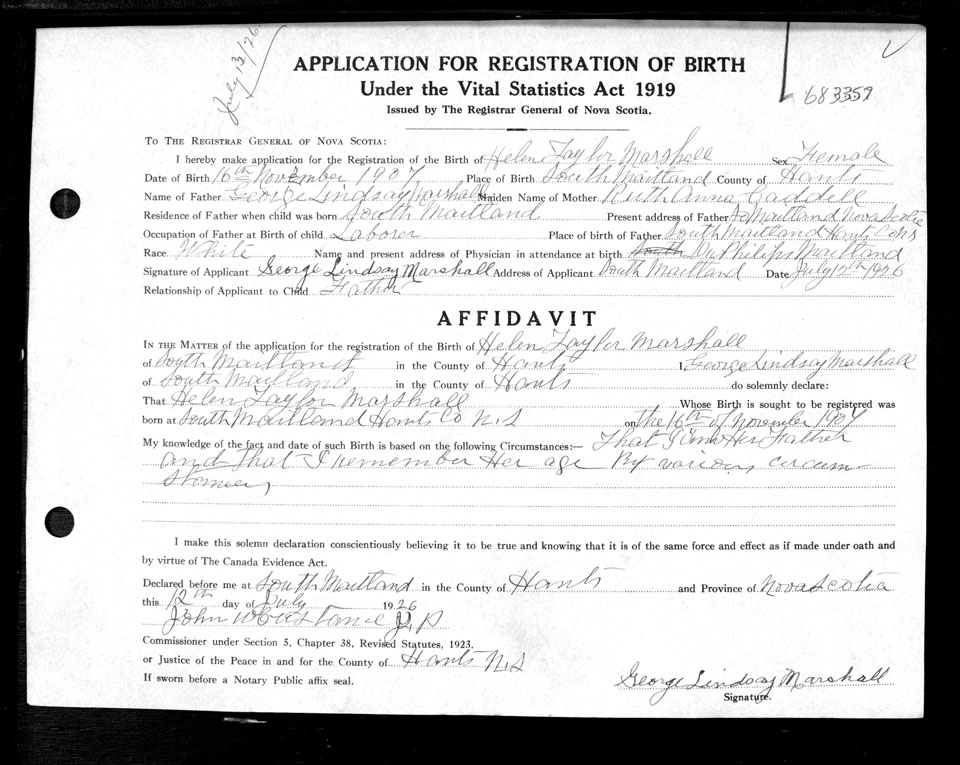 July 13/26
APPLICATION FOR REGISTRATION OF BIRTH
Under the Vital Statistics Act 1919
Issued by The Registrar General of Nova Scotia.
TO THE REGISTRAR GENERAL OF NOVA SCOTIA:
I hereby make application for the Registration of the Birth of Helen Taylor Marshall Sex Female
Date of Birth 16th November 1907 Place of Birth South Maitland County of Hants
Name of Father George Lindsay Marshall Maiden Name of Mother Ruth Anna Caddell
Residence of Father when child was born South Maitland Present address of Father So Maitland Nova Scotia
Occupation of Father at Birth of child Laborer Place of birth of Father South Maitland Hants Co N S
Race White Name and present address of Physician in attendance at birth South Dr Philips Maitland
Signature of Applicant George Lindsay Marshall Address of Applicant South Maitland Date July 12th 1926
Relationship of Applicant to Child Father
AFFIDAVIT
IN THE MATTER of the application for the registration of the Birth of Helen Taylor Marshall
of South Maitland in the County of Hants I, George Lindsay Marshall
of South Maytland in the County of Hants do solemnly declare:
That Helen Taylor Marshall Whose Birth is sought to be registered was
born at South Maitland Hants Co N.S on the 16th of November 1907
My knowledge of the fact and date of such Birth is based on the following Circumstances:— That I am Her Father
and that I remember Her age By various circum-
stances,
I make this solemn declaration conscientiously believing it to be true and knowing that it is of the same force and effect as if made under oath and
by virtue of The Canada Evidence Act.
Declared before me at South Maitland in the County of Hants and Province of Nova Scotia
this 12th day of July 1926
John W J.P
Commissioner under Section 5, Chapter 38, Revised Statutes, 1923,
or Justice of the Peace in and for the County of Hants N.S
If sworn before a Notary Public affix seal.
George Lindsay Marshall
Signature.